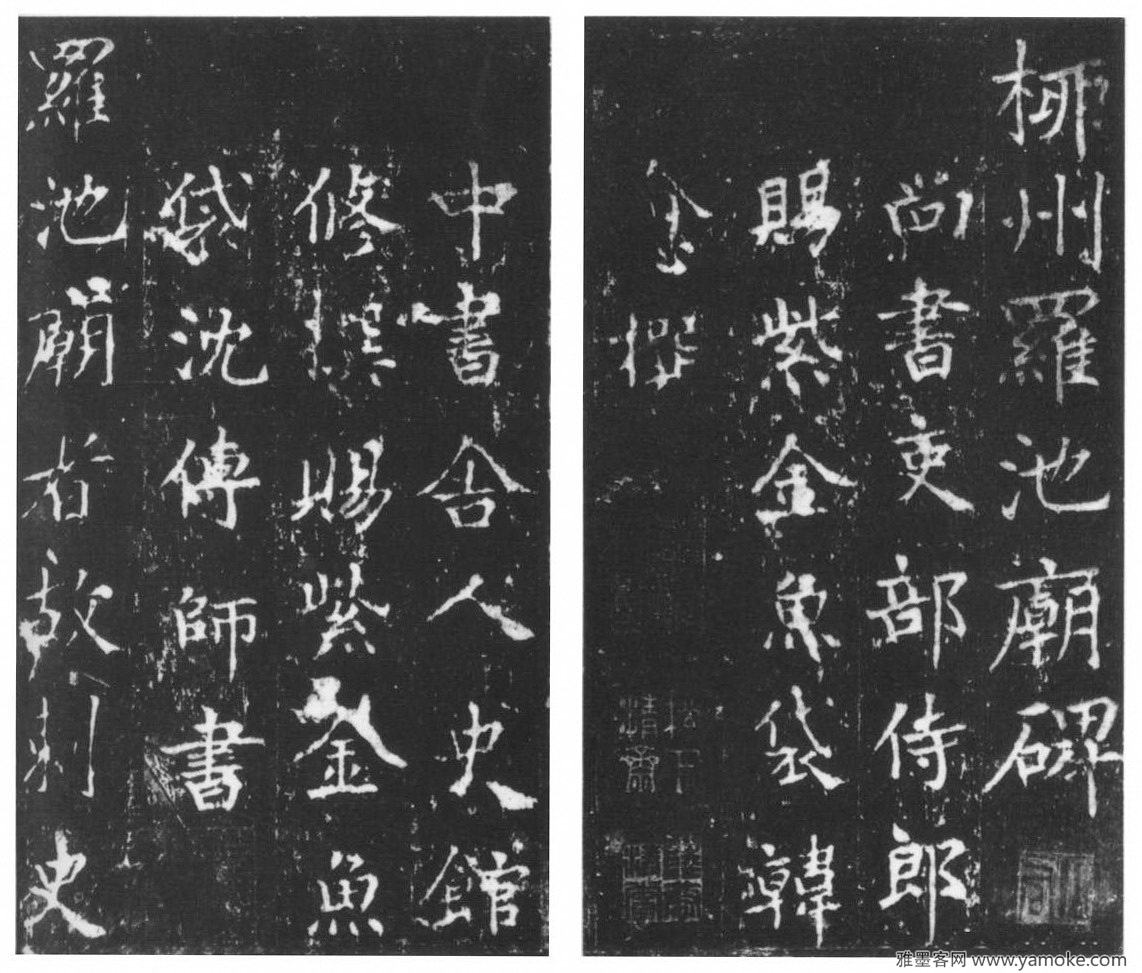 柳州羅池廟碑
尚書吏部侍郎
賜紫金魚袋韓
愈撰
松下清齋
中書舍人史館
修撰賜紫金魚
袋沈傳師書
羅池廟者故刺史
雅墨客网 www.yamoke.com